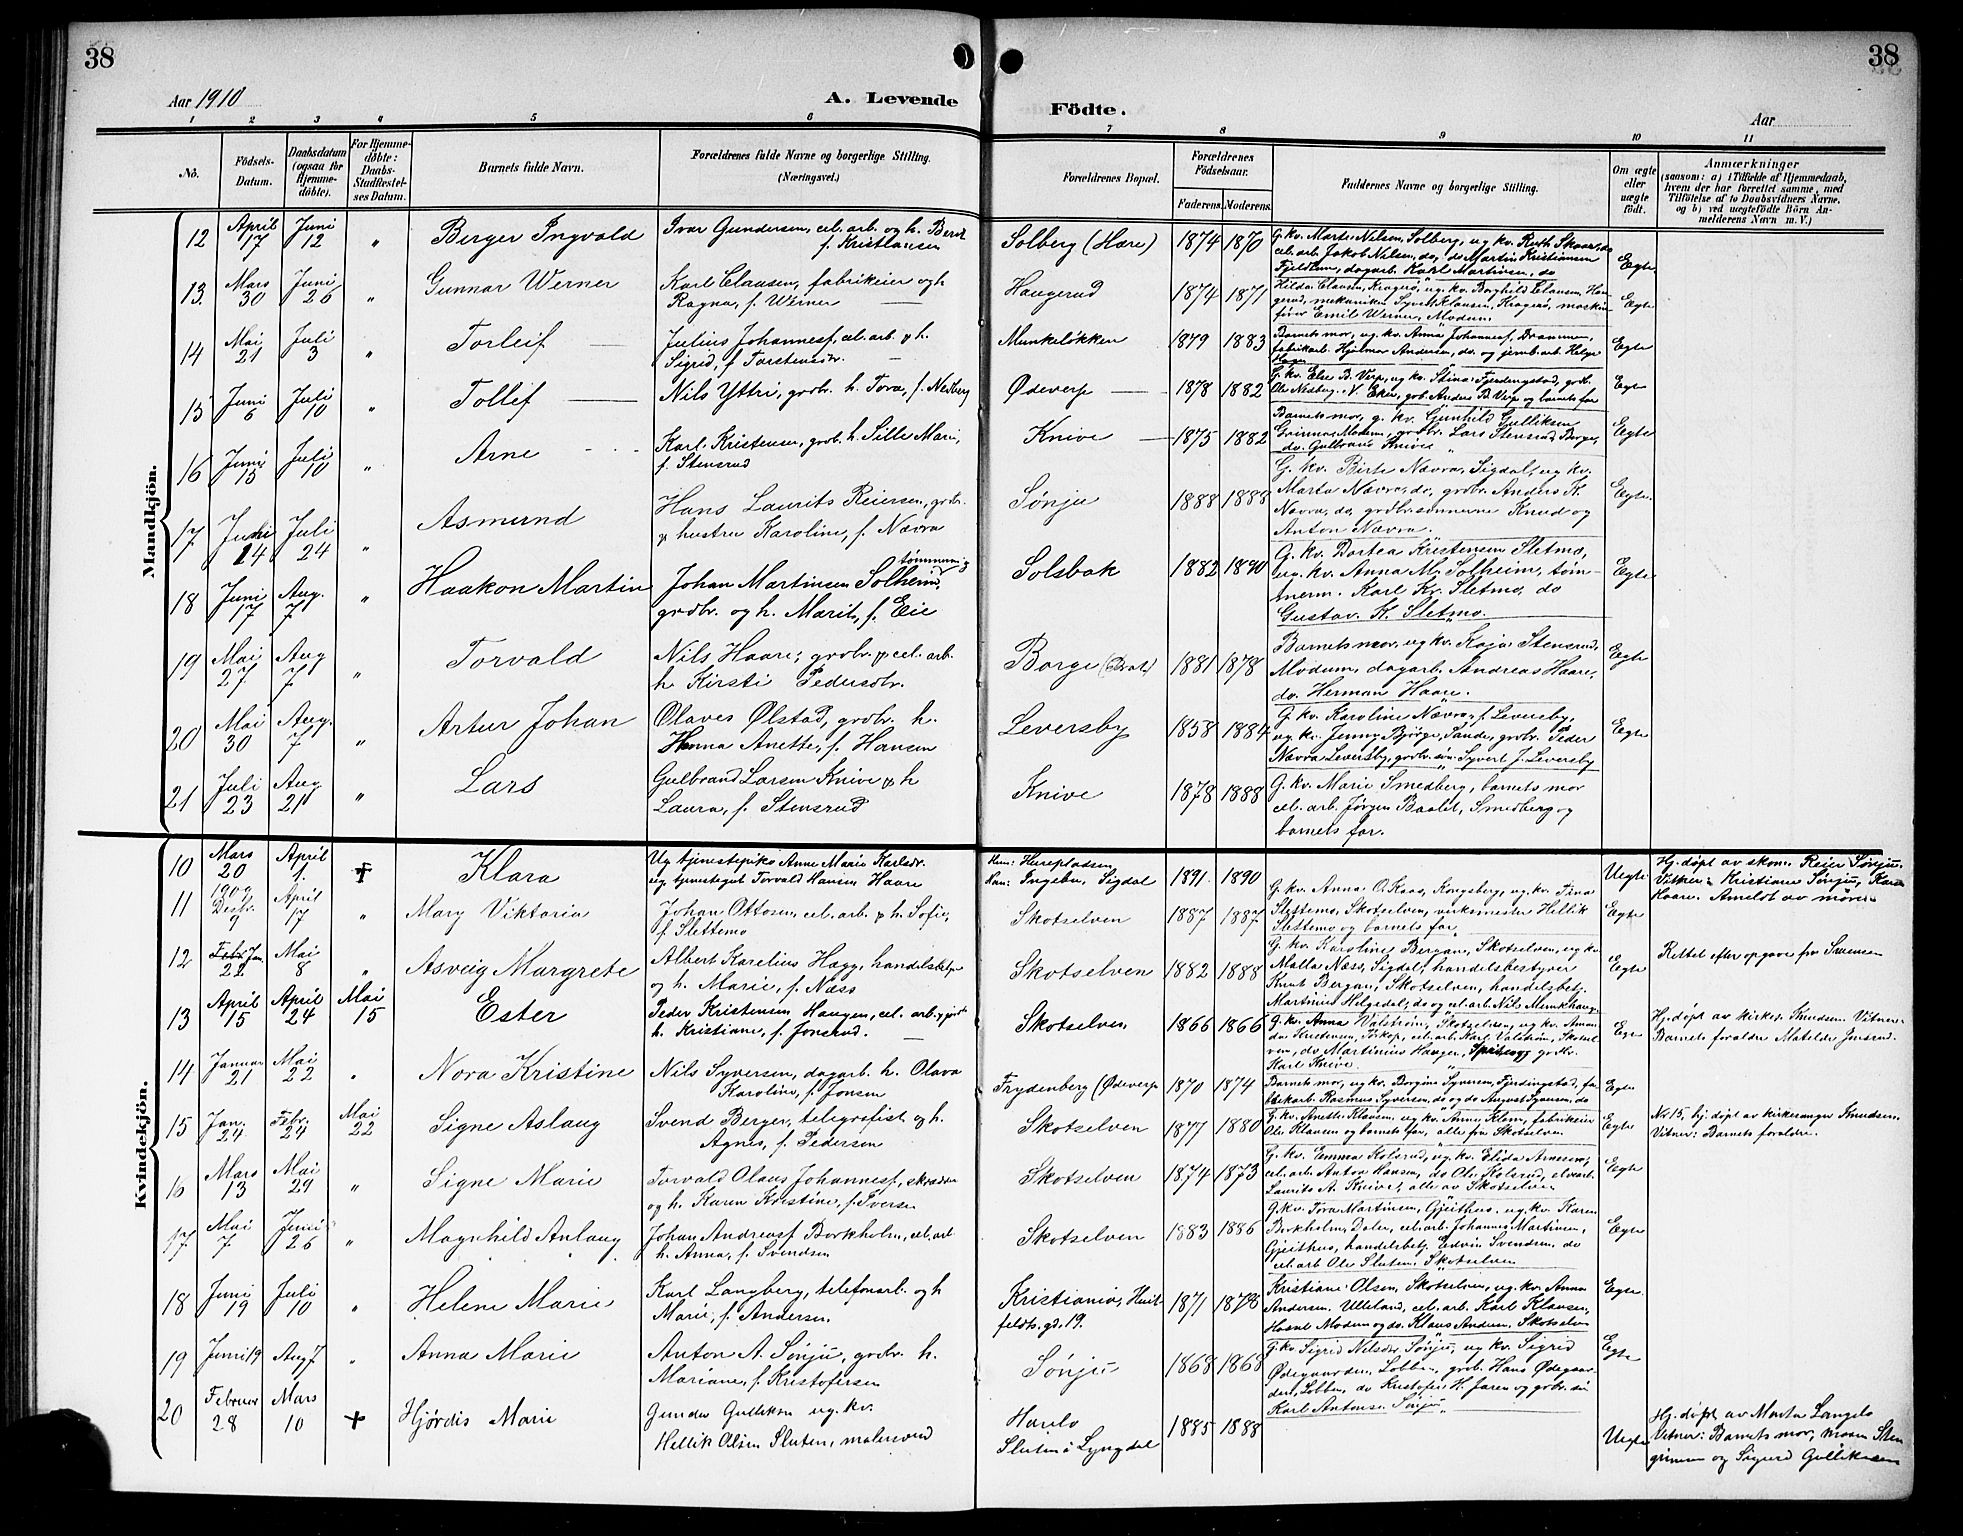 38
38
Aar 1910
A. Levende
Födte.
Aar
1 2 3 4 5 6 7 8 9 10 11
No.
Födsels-
Datum.
Daabsdatum
(ogsaa for
Hjemme-
döbte).
For Hjemme-
döbte:
Daabs-
Stadfæstel-
ses Datum.
Barnets fulde Navn.
Forældrenes fulde Navne og borgerlige Stilling.
(Næringsvei.)
Forældrenes Bopæl.
Forældrenes
Födselsaar.
Faderens. Moderens.
Faddernes Navne og borgerlige Stilling.
Om ægte
eller
uægte
födt.
Anmærkninger
(saasom: a) i Tilfælde af Hjemmedaab,
hvem der har forrettet samme, med
Tilföielse af to Daabsvidners Navne,
og b) ved uægtefödte Börn An-
melderens Navn m. V.)
Mandkjön.
12 April 17 Juni 12 " Berger Ingvald
Ivar Gundersen, cel. arb. og h. Berit
f. Kristiansen
Solberg (Hare) 1874 1870
G. kv. Marte Nilsen, Solberg, ug kv. Ruth Skaar, do
cel. arb. Jakob Nilsen, do, do Martin Kristiansen
dagarb. Karl Martinsen, do
Egte
13. Mars 30 Juni 26 " Gunnar Werner
Karl Clausen, fabrikeier og h
Ragna, f. Werner
Haugerud 1874 1871
Hilda Clausen, Kragerø, ug. kv. Borghild Clausen, Hau-
gerud, mekaniker Syvert Klausen, Kragerø, maskin-
fører Emil Werner, Modum.
Egte
14 Mai 21 Juli 3 " Torleif
Julius Johannesf, cel. arb. & h.
Sigrid, f Torstensdr.
Munkeløkken 1879 1883
Barnets mor, ug. kv. Anna Johannesf, Drammen,
fabrikarb. Hjalmar Andersen, do. og jernb. arb. Helge
Egte
15 Juni 6 Juli 10 " Tollef
Nils Yttri, grdbr. h. Tora, f. Nedberg
Ødeverp 1878 1882
G. kv. Else B. Verp, ug kv. Stina Fjerdingstad, grdb.
Ole Nedberg, N. Eker, grb. Anders B. Verp og barnets far
Egte
16 Juni 15 Juli 10 " Arne
Karl Kristensen, grdb. h. Sille Marie,
f. Stensrud
Knive 1875 1882
Barnets mor, g. kv. Gunhild Gulliksen
Modum, grdbr. Lars Stensrud Berger,
do. Gulbrand Knive
Egte
17 Juni 14 Juli 24 " Asmund
Hans Laurits Reiersen, grdb.
& hustru Karoline, f. Nævra
Sønju 1888 1888
G. kv. Birte Nævra, Sigdal, ug kv.
Marta Nævra, do, grdbr. Anders K.
Nævra, do, grdbr. sønnerne Knud og
Anton Nævra.
Egte
18 Juni 17 Aug. 7 " Haakon Martin
Johan Martinsen Solheim,
grdbr. og h. Marit, f. Eie
Solsbak 1882 1890
G. kv. Dortea Kristensen Sletmo,
ug. kv. Anna M. Solheim, tøm-
merm. Karl Kr. Sletmo, do
Gustav K. Sletmo.
Egte
19 Mai 27 Aug 7 " Torvald
Nils Haare, grdbr. & cel. arb.
h. Kirsti Pedersdr.
Borge 1881 1878
Barnets mor, ug kv. Kaja Stensrud,
Modum, dagarb. Andreas Haare,
do. Herman Haare.
Egte
20 Mai 30 Aug. 7 " Artur Johan
Olaves Ølstad, grdbr. h.
Hanna Anette, f. Hansen
Leversby 1858 1884
G. kv. Karoline Nævra, f. Leversby,
ug. kv. Jenny Bjørge, Sande, grdbr. Peder
Nævra Leversby, grdbr. søn Syvert J. Leversby
Egte
21 Juli 23 Aug 21 " Lars
Gulbrand Larsen Knive & h
Laura, f. Stensrud
Knive 1878 1888
G. kv. Marie Smedberg, barnets mor
cel. arb. Jørgen Smedberg og
barnets far.
Kvindekjön.
10 Mars 20 April 1. + Klara
Ug tjenestepike Anne Marie Karlsdr.
ug. tjenestegut Torvald Hansen Haare
Hun: Herepladsen
Han: Ingebu, Sigdal 1891. 1890
Uegte
Hj. døpt av skom. Reier Sønju.
Vitner: Kristiane Sønju, Karen
Haare. Anmeldt av moren
11 1909 Desbr. 9 April 17 " Mary Viktoria
Johan Ottosen, cel. arb. & h. Sofie,
f. Slettemo
Skotselven 1887 1887
G. kv. Anna O. Kaas, Kongsberg, ug. kv. Tina
Slettemo, Skotselven, verksmester Hellik
Slettemo og barnets far
Egte
12 Febr. Jan. 22 Mai 8 " Asveig Margrete
Albert Karelius Hagg, handelsbetj.
og h. Marie, f. Næss
Skotselven 1882 1888
G. kv. Karoline Bergan, Skotselven, ug kv.
Malla Næss, Sigdal, handelsbestyrer
Knut Bergan, Skotselven, handelsbetj.
Martinius Helgedal, do og cel. arb. Nils Munkhaug
Egte
Rettet efter opgave fra
13 April 15 April 24 Mai 15 Ester
Peder Kristensen Haugen, cel. arb.
h. Kristiane, f. Jonsrud.
Skotselven 1866 1866
G. kv. Anna Walstrøm, Skotselven, ug kv. Aman-
da Kristensen, cel. arb. Karl Valstrøm, Skotsel-
ven, do Martinius Haugen, grdb.
Karl Knive
Egte
Hj. døpt av kirkes. Knudsen. Vitner:
Barnets foræ­ldre Matilde Jonsrud.
14 Januar 21 Mai 22 " Nora Kristine
Nils Syversen, dagarb. h. Olava
Karoline, f. Jonsen
Frydenberg (Ødeverp 1870 1874
Barnets mor, ug kv. Borgine Syversen, Fjerdingstad, fa-
brikarb. Rasmus Syversen, do og do August Syversen, do
Egte
15 Jan. 24 Febr. 24 Mai 22 Signe Aslaug
Svend Berger, telegrafist og h.
Agnes, f. Pedersen
Skotselven 1877 1880
G. kv. Anette Klausen, ug kv. Anna Klem, fabrikeier
Ole Klausen og barnets far, alle fra Skotselven
Egte
No 15. hj. døpt av kirkesanger Knudsen.
Vitner: Barnets foræ­ldre.
16 Mars 13 Mai 29 " Signe Marie
Torvald Olaus Johannesf, skrædder
og h. Karen Kristine, f. Iversen
Skotselven 1874 1873
G. kv. Emma Kolsrud, ug. kv. Elida Arnesen,
cel. arb. Anton Hansen, do Ole Kolsrud,
Laurits A. Knive, alle av Skotselven
Egte
17. Mai 7 Juni 26 " Magnhild Aslaug
Johan Andreasf Borkholm, cel. arb
h. Anna, f. Svendsen
Skotselven 1883 1886
G. kv. Tora Martinsen, Gjeithus, ug. kv. Karen
Borkholm, Dalen, cel. arb. Johannes Martinsen,
Gjeithus, handelsbetj. Edvin Svendsen, do
cel. arb Ole Sluten, Skotselven
Egte
18 Juni 19 Juli 10 " Helene Marie
Karl Langberg, telefonarb. og h
Marie, f. Andersen.
Kristiania, Huit-
feldts. gd. 19. 1871 1878
Kristiane Olsen, Skotselven, ug. kv. Anna
Andersen, Ulleland, cel. arb. Karl Klausen,
Modum og do. Klaus Andersen, Skotselven
Egte
19 Juni 19 Aug 7 " Anna Marie
Anton A. Sønju, grdbr. h.
Mariane, f. Kristofersen
Sønju 1868 1868
G. kv Sigrid Nelsdr. Sønju, ug kv. Sigrid
Ødegaarden, Lobben, grdb. Hans Ødegaar-
den, Lobben, do Kristofer H. Jaren og grdbr. søn
Karl Antonsen Sønju
Egte
20 Februar 28 Mars 10 + Hjørdis Marie
Gunda Gulliksen ug. kv.
Hellik Olsen Sluten, malersvend
Sluten i Lyngdal 1885 1888
Uegte
Hj. døpt av Marta Langelo
Vitner: Barnets mor,
og Sigurd Gulliksen